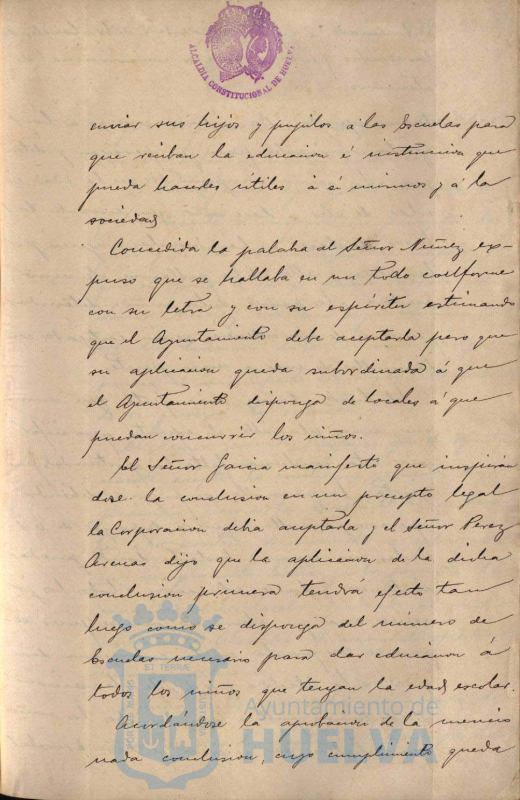 ALCALDIA CONSTITUCIONAL DE HUELVA
enviar sus hijos y pupilos á las Escuelas para
que reciban la educacion é instruccion que
pueda hacerles útiles á si mismos y á la
sociedad
Concedida la palabra al Señor Nuñez ex-
puso que se hallaba en un todo conforme
con su letra y con su espíritu estimando
que el Ayuntamiento debe aceptarla pero que
su aplicacion queda subordinada á que
el Ayuntamiento disponga de locales á que
puedan concurrir los niños.
El Señor Garcia manifestó que inspirán
dose la conclusion en un precepto legal
la Corporacion debia aceptarla y el Señor Perez
Arenas dijo que la aplicacion de la dicha
conclusion primera tendrá efecto tan
luego como se disponga del número de
Escuelas necesario para dar educacion á
todos los niños que tengan la edad escolar.
Acordándose la aprobacion de la mencio
nada conclusion, cuyo cumplimiento queda
Ayuntamiento de
HUELVA